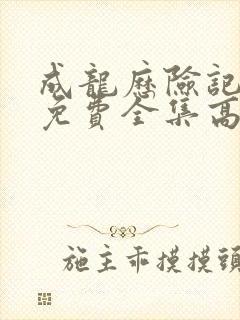 成龍歷險記
免費全集高
施主乖摸摸頭